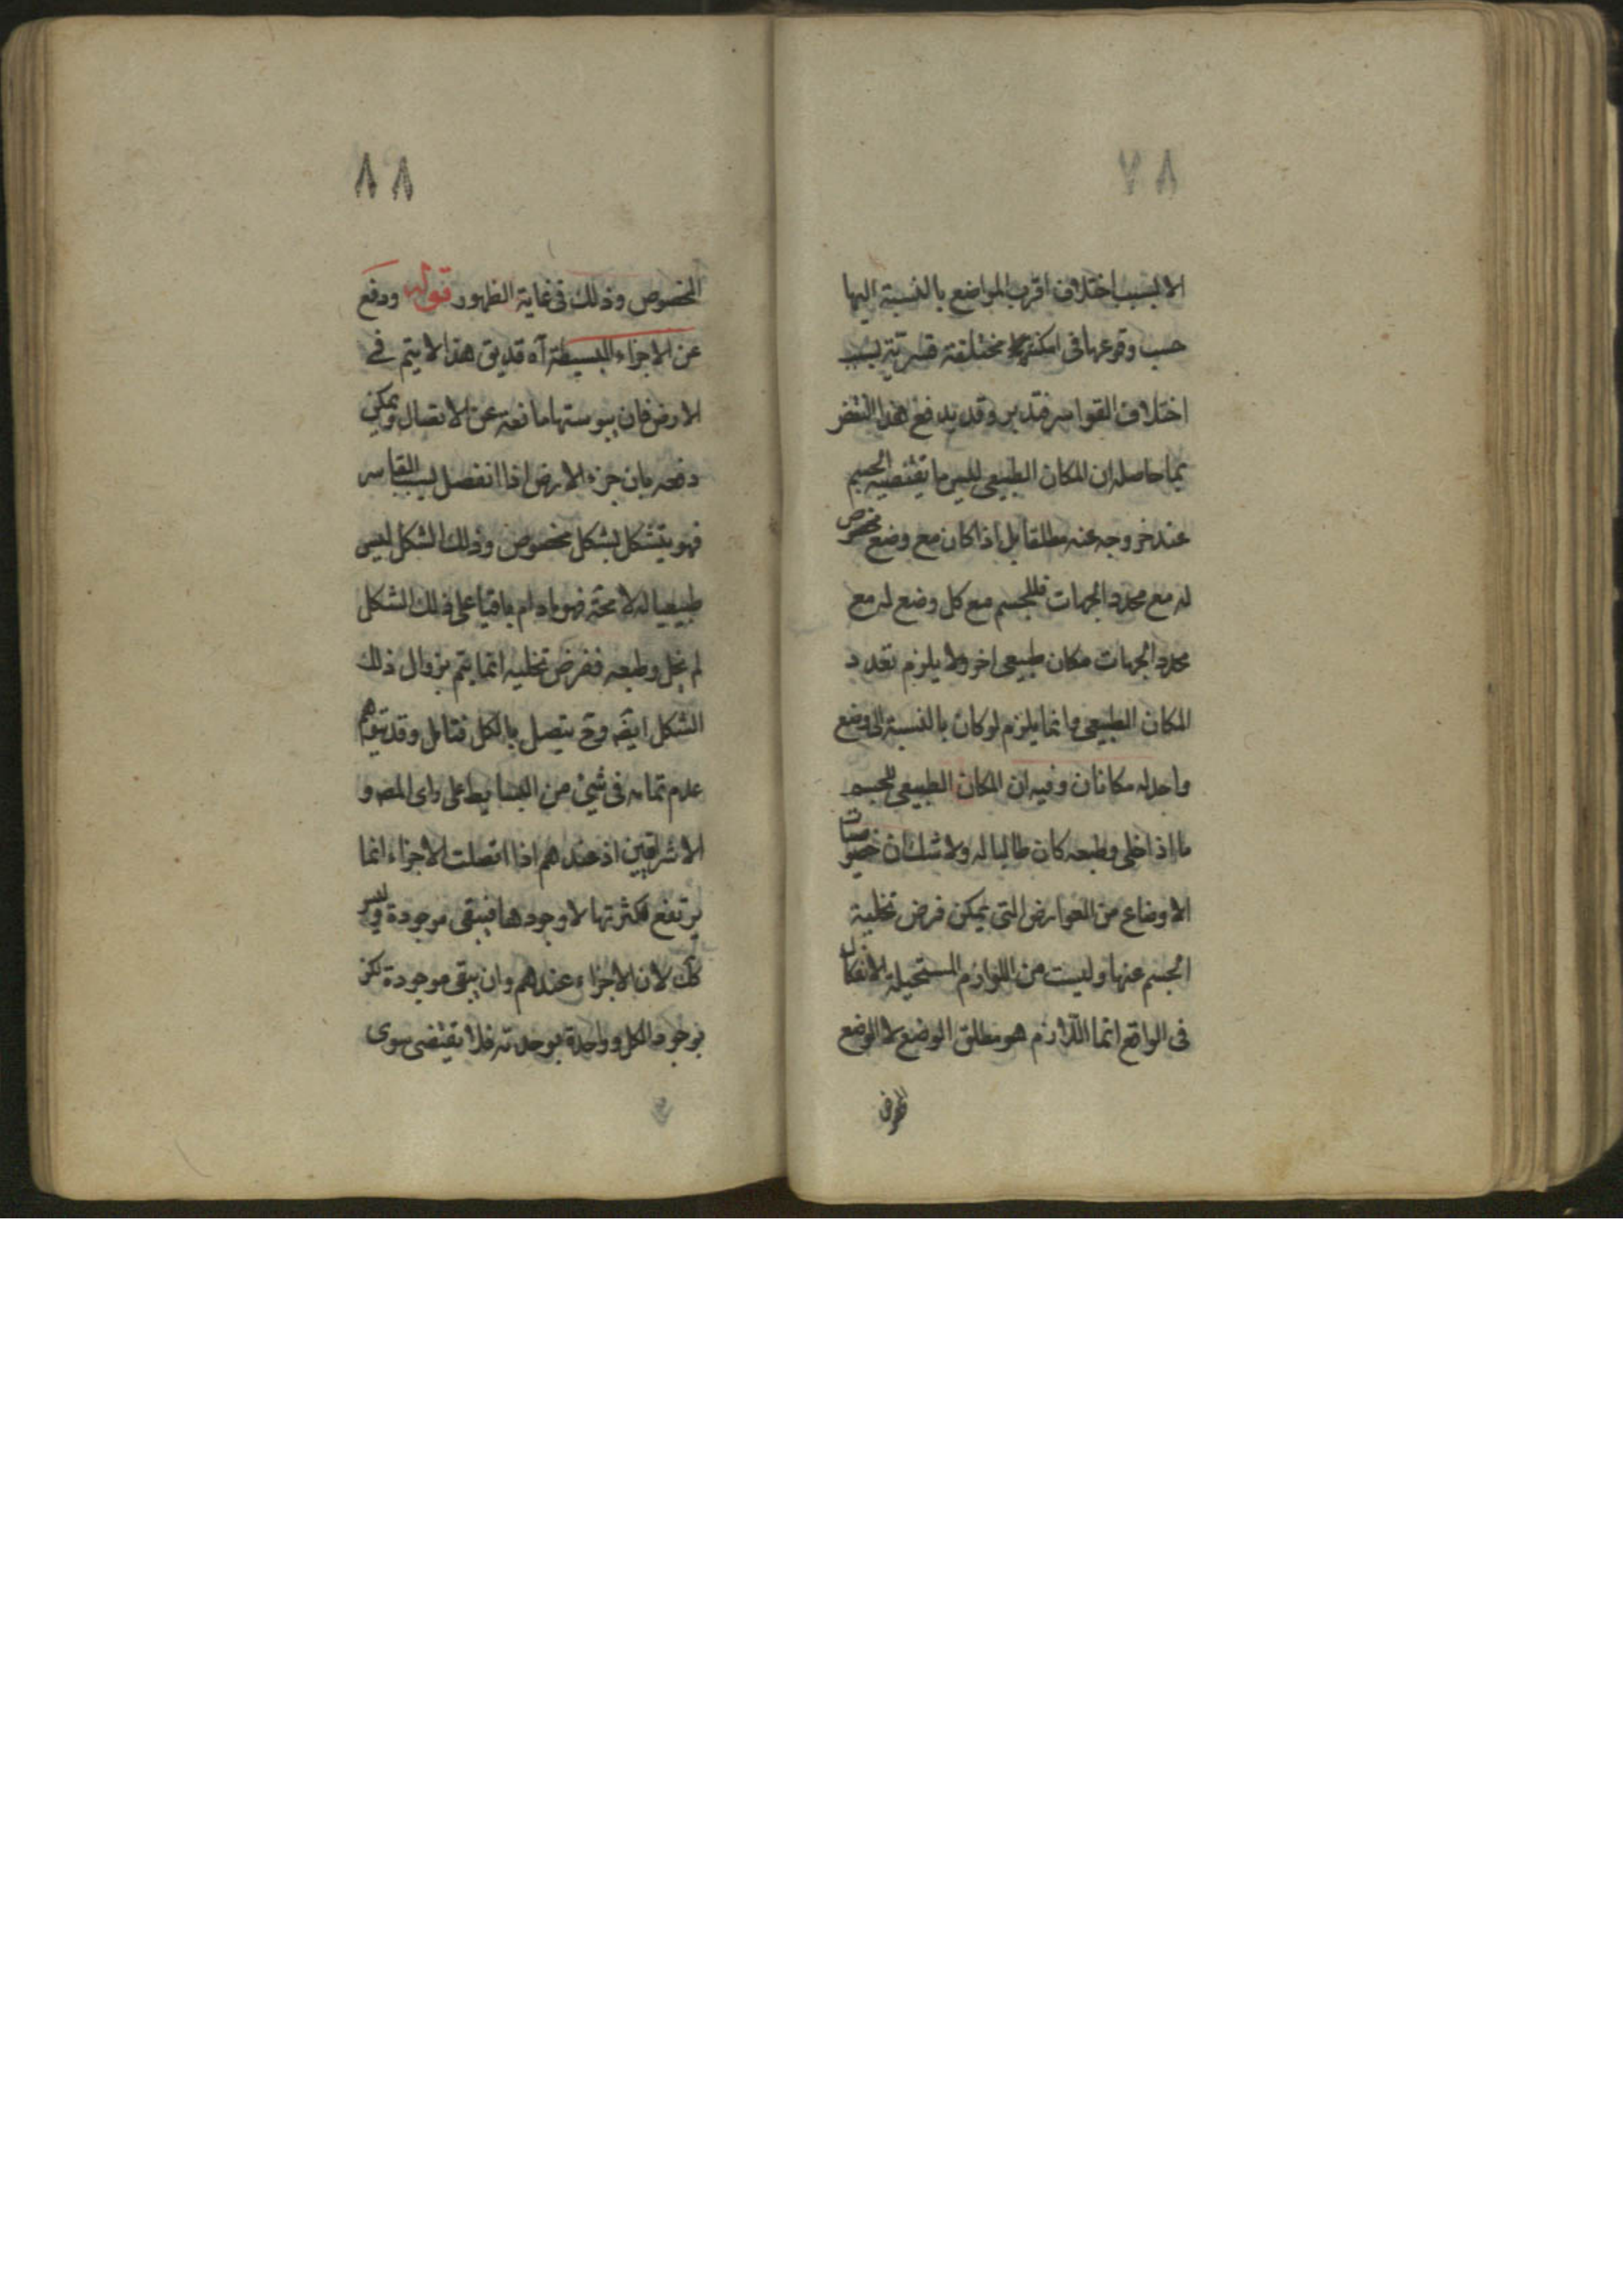 ٨٧
الا بسبب اختلاف اقرب المواضع بالنسبة اليها
حسب وقوعها فى امكنة مختلفة قسرية بسبب
اختلاف القواسر فتدبر وقد يدفع هذا النقض
بما حاصله ان المكان الطبيعى ليس ما يقتضيه الجسم
عند خروجه عنه مطلقا بل اذا كان مع وضع مخصوص
له مع محدد الجهات فللجسم مع كل وضع له مع
محدد الجهات مكان طبيعى اخر ولا يلزم تعدد
المكان الطبيعى وانما يلزم لو كان بالنسبة الى وضع
واحد له مكانان وفيه ان المكان الطبيعى للجسم
ما اذا خلى وطبعه كان طالبا له ولا شك ان خصوصيات
الاوضاع من العوارض التى يمكن فرض تخلية
الجسم عنها وليست من اللوازم المستحيلة الانفكاك
فى الواقع انما اللازم هو مطلق الوضع لا الوضع
٨٨
المخصوص وذلك فى غاية الظهور قوله ودفع
عن الاجزاء البسيطة آه قد يق هذا لا يتم فے
الارض فان يبوستها مانعه عن الاتصال ويمكن
دفعه بان جزء الارض اذا انفصل بسبب القاسر
فهو يتشكل بشكل مخصوص وذلك الشكل ليس
طبيعيا له لا محة فهو مادام باقيا على ذلك الشكل
لم يخل وطبعه ففرض تخليه انما يتم بزوال ذلك
الشكل ايضه وح يتصل بالكل فتامل وقد يتوهم
عدم تمامه فى شئ من البسايط على راى المصه و
الاشراقيين اذ عندهم اذا اتصلت الاجزاء انما
يرتفع كثرتها لا وجودها فيبقى موجودة وليس
كك لان الاجزاء عندهم وان يبقى موجودة لكن
بوجود الكل وواحدة بوحدته فلا يقتضى سوى